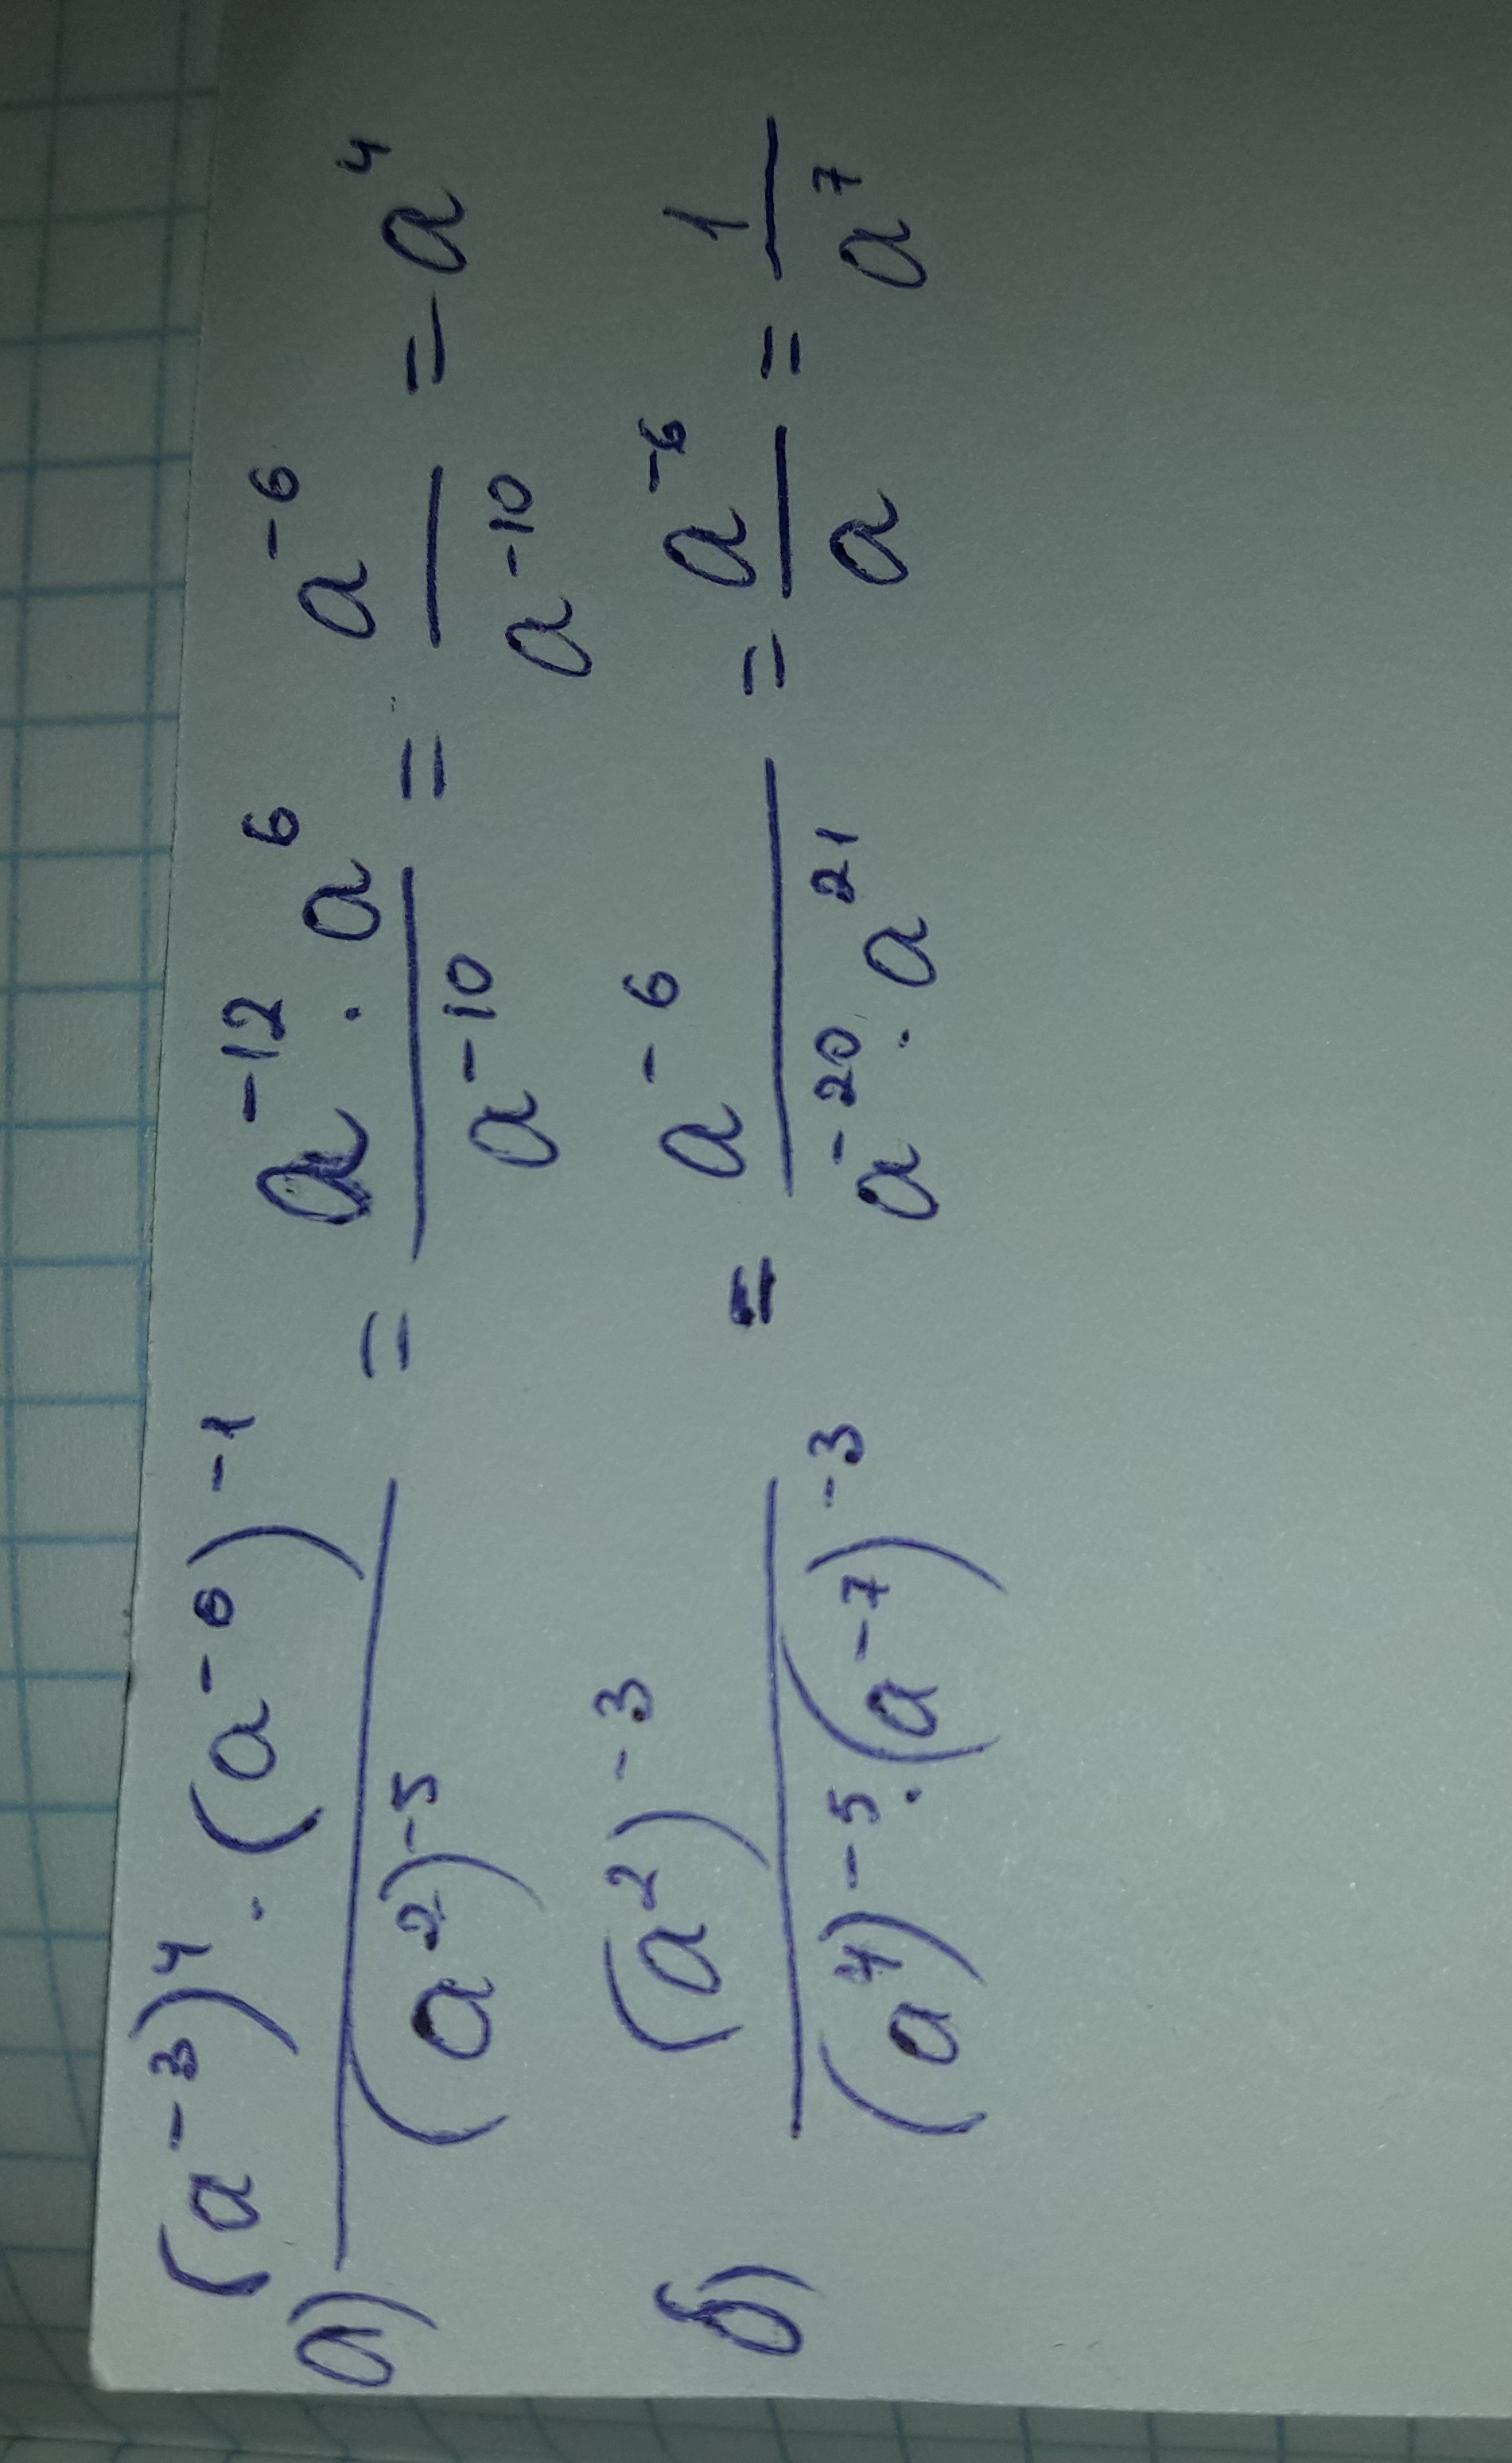 а) ((a⁻³)⁴ · (a⁻⁶)⁻¹) / (a²)⁻⁵ = (a⁻¹² · a⁶) / a⁻¹⁰ = a⁻⁶ / a⁻¹⁰ = a⁴
б) (a²)⁻³ / ((a⁴)⁻⁵ · (a⁻⁷)⁻³) = a⁻⁶ / (a⁻²⁰ · a²¹) = a⁻⁶ / a = 1 / a⁷